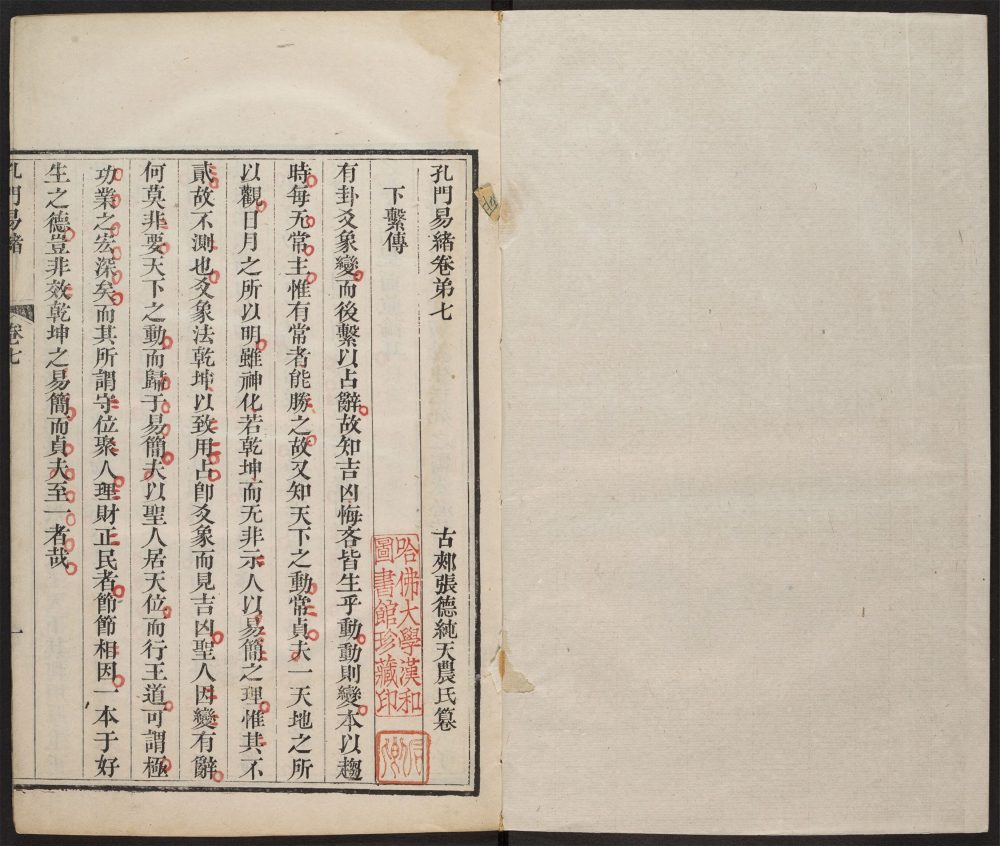 孔門易緒卷弟七
古郯張德純天農氏篹
下繫傳
有卦爻象變而後繫以占辭故知吉凶悔吝皆生乎動動則變本以趨
時每无常主惟有常者能勝之故又知天下之動常貞夫一天地之所
以觀日月之所以明雖神化若乾坤而无非示人以易簡之理惟其不
貳故不測也爻象法乾坤以致用占卽爻象而見吉凶聖人因變有辭
何莫非要天下之動而歸于易簡夫以聖人居天位而行王道可謂極
功業之宏深矣而其所謂守位聚人理財正民者節節相因一本于好
生之德豈非效乾坤之易簡而貞夫至一者哉
孔門易緒
卷七
一
哈佛大學漢和
圖書館珍藏印